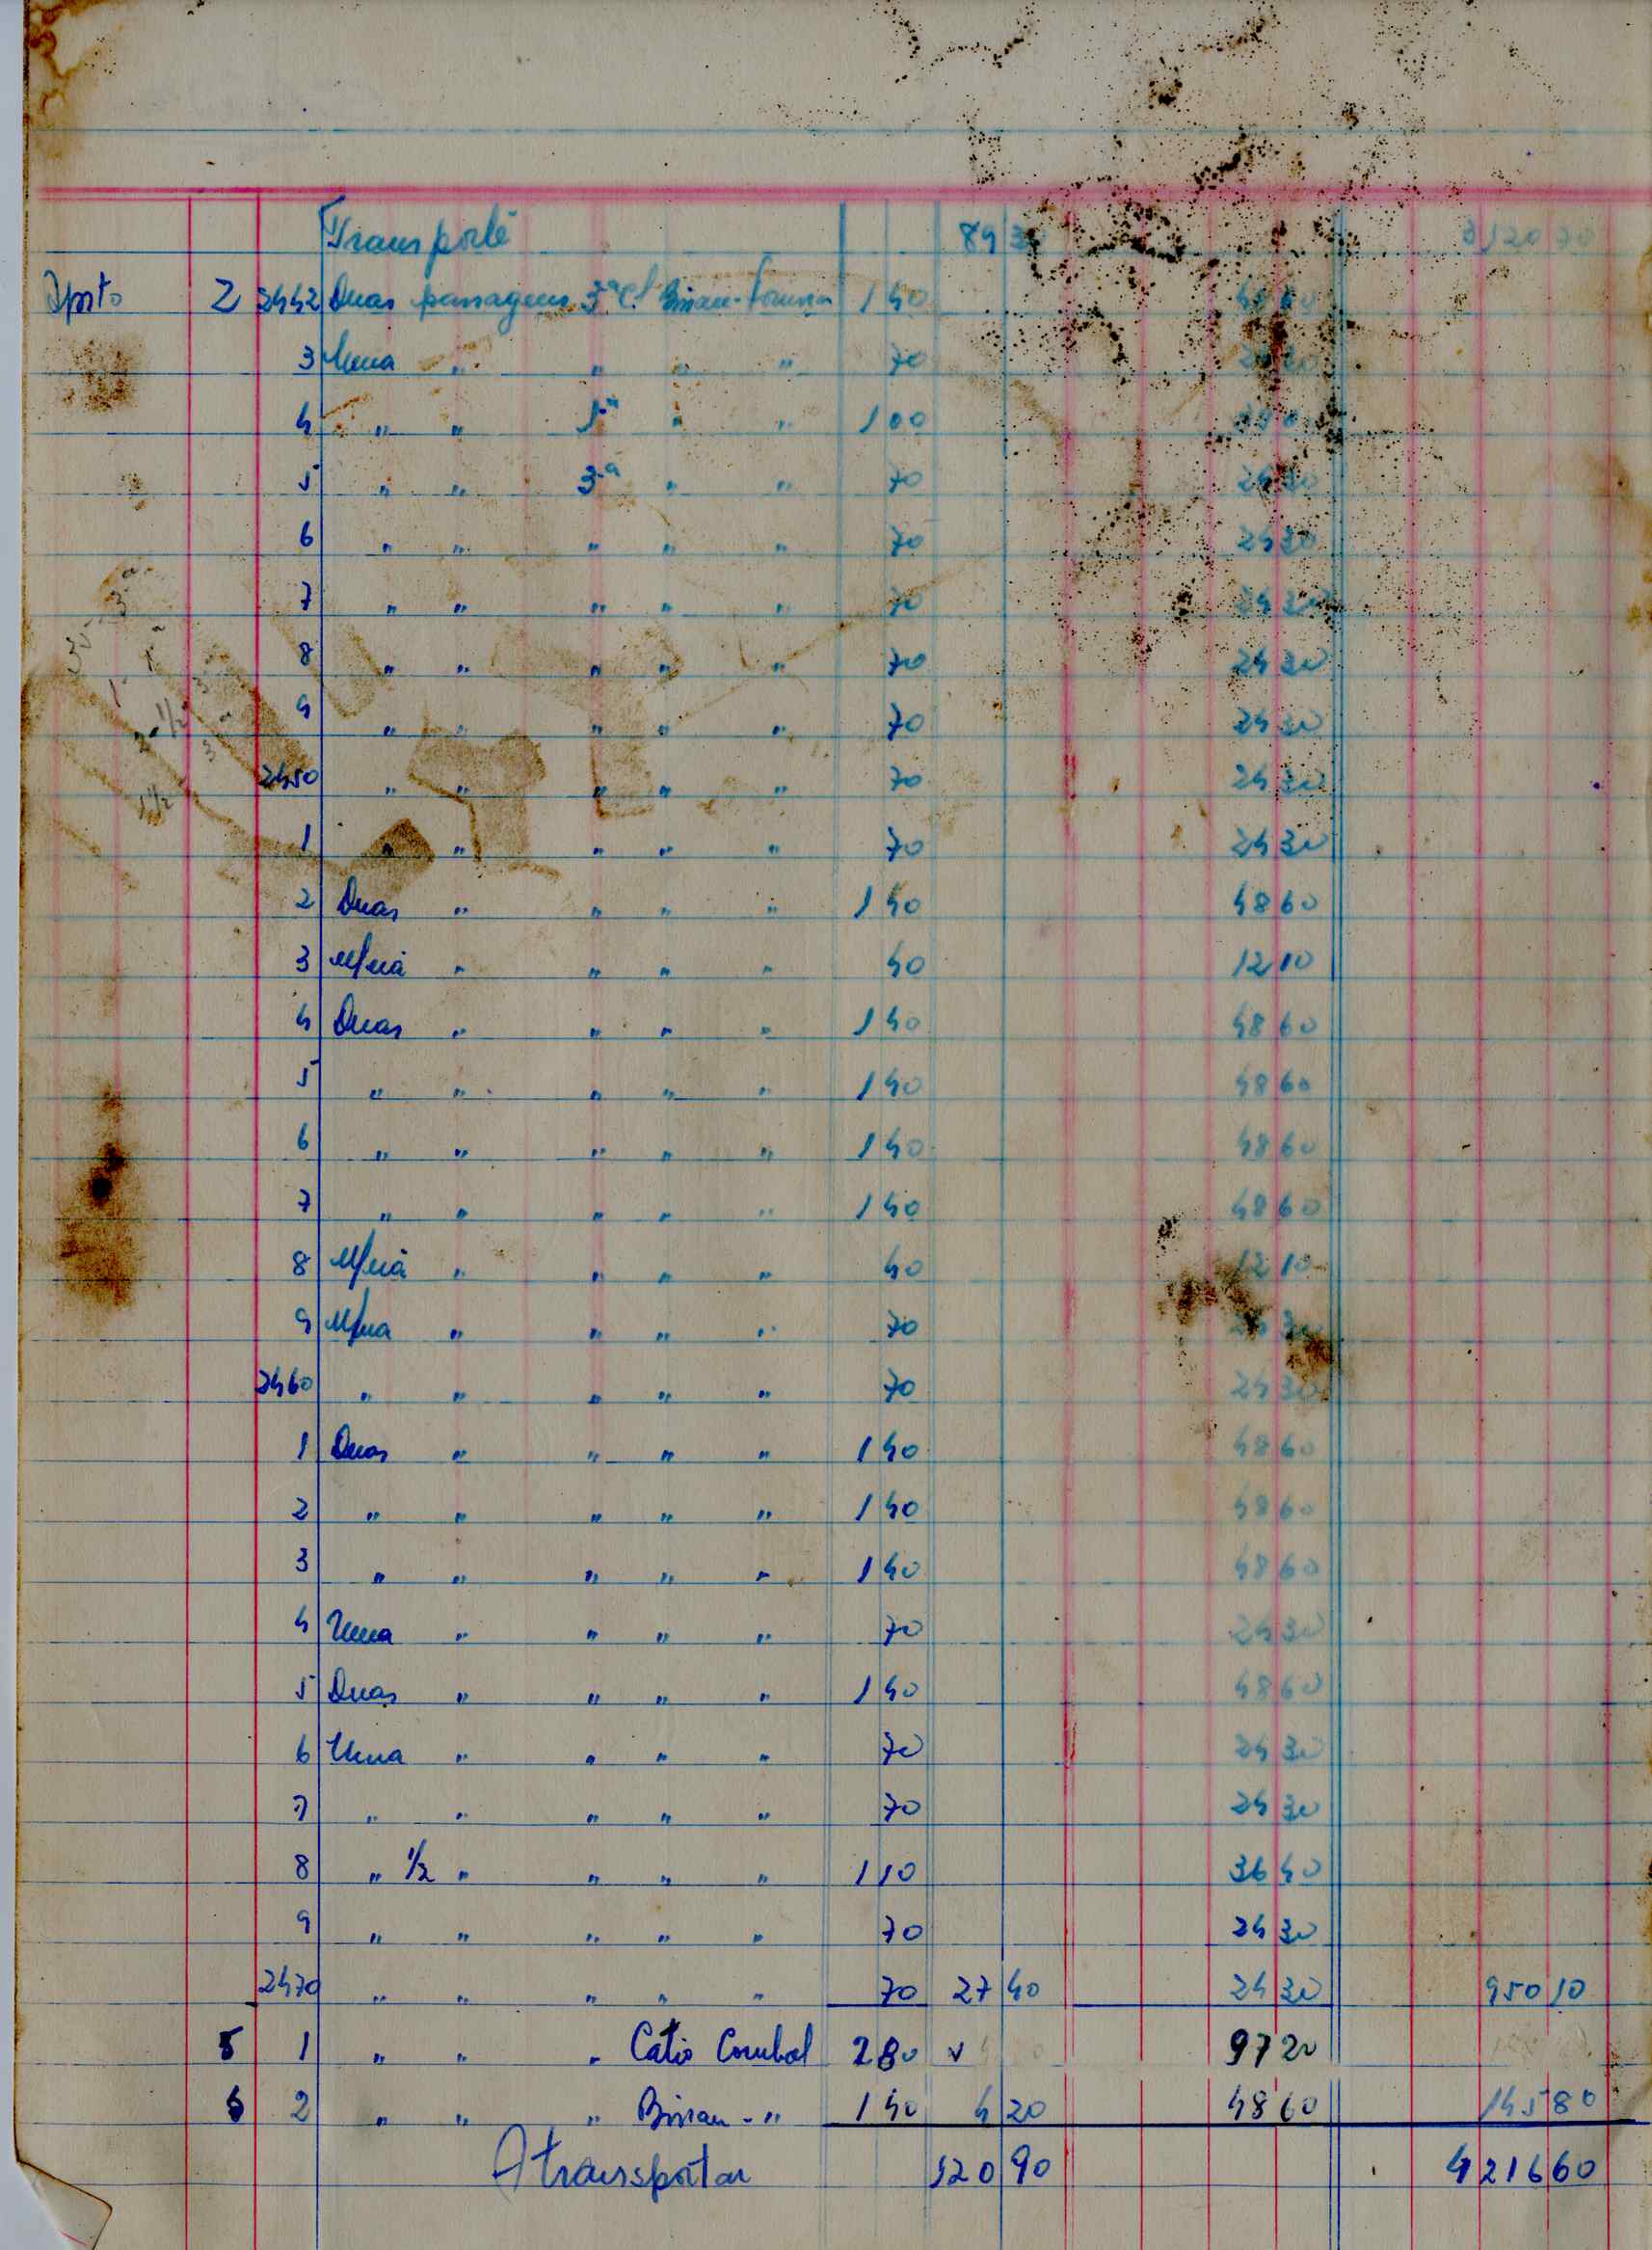 Transporte 89 30 3120 70
Agosto 2 2442 Duas passagens 3.ª Cl Bissau - 1 40 48 60
3 Uma " " " " 70 24 30
4 " " 1.ª " " 1 00
5 " " 3.ª " " 70 24 30
6 " " " " " 70 24 30
7 " " " " " 70 24 30
8 " " " " " 70 24 30
9 " " " " " 70 24 30
2450 " " " " " 70 24 30
1 " " " " " 70 24 30
2 Duas " " " " 1 40 48 60
3 Meia " " " " 40 12 10
4 Duas " " " " 1 40 48 60
5 " " " " " 1 40 48 60
6 " " " " " 1 40 48 60
7 " " " " " 1 40 48 60
8 Meia " " " " 40 12 10
9 Uma " " " " 70 24 30
2460 " " " " " 70 24 30
1 Duas " " " " 1 40 48 60
2 " " " " " 1 40 48 60
3 " " " " " 1 40 48 60
4 Uma " " " " 70 24 30
5 Duas " " " " 1 40 48 60
6 Uma " " " " 70 24 30
7 " " " " " 70 24 30
8 " 1/2 " " " " 1 10 36 40
9 " " " " " 70 24 30
2470 " " " " " 70 27 40 24 30 950 10
5 1 " " " Catió Cumbal 2 80 v 97 20
6 2 " " " Bissau - " 1 40 4 20 48 60 145 80
A transportar 120 90 4216 60
3ª
1ª
1/2
3ª
1/2